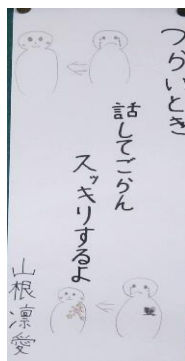 つらいとき
話してごらん
スッキリするよ
山根凛愛